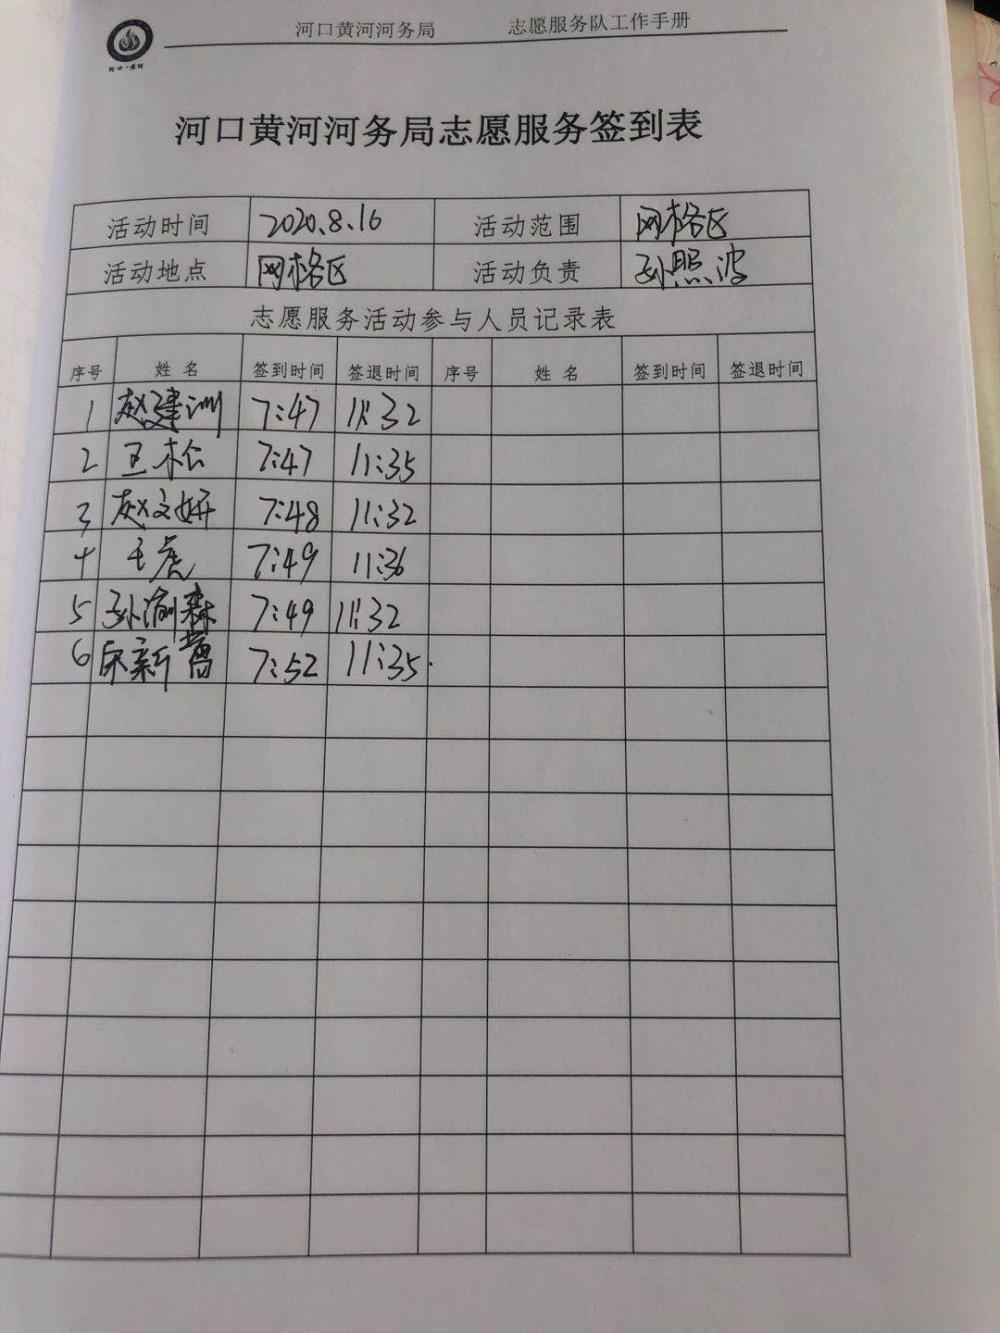 河口黄河河务局 志愿服务队工作手册
河口·黄河
河口黄河河务局志愿服务签到表
活动时间 2020.8.16 活动范围 网格区
活动地点 网格区 活动负责 孙照波
志愿服务活动参与人员记录表
序号 姓名 签到时间 签退时间 序号 姓名 签到时间 签退时间
1 赵建训 7:47 11:32
2 王松 7:47 11:35
3 赵文妍 7:48 11:32
4 王虎 7:49 11:36
5 孙渝森 7:49 11:32
6 新 7:52 11:35